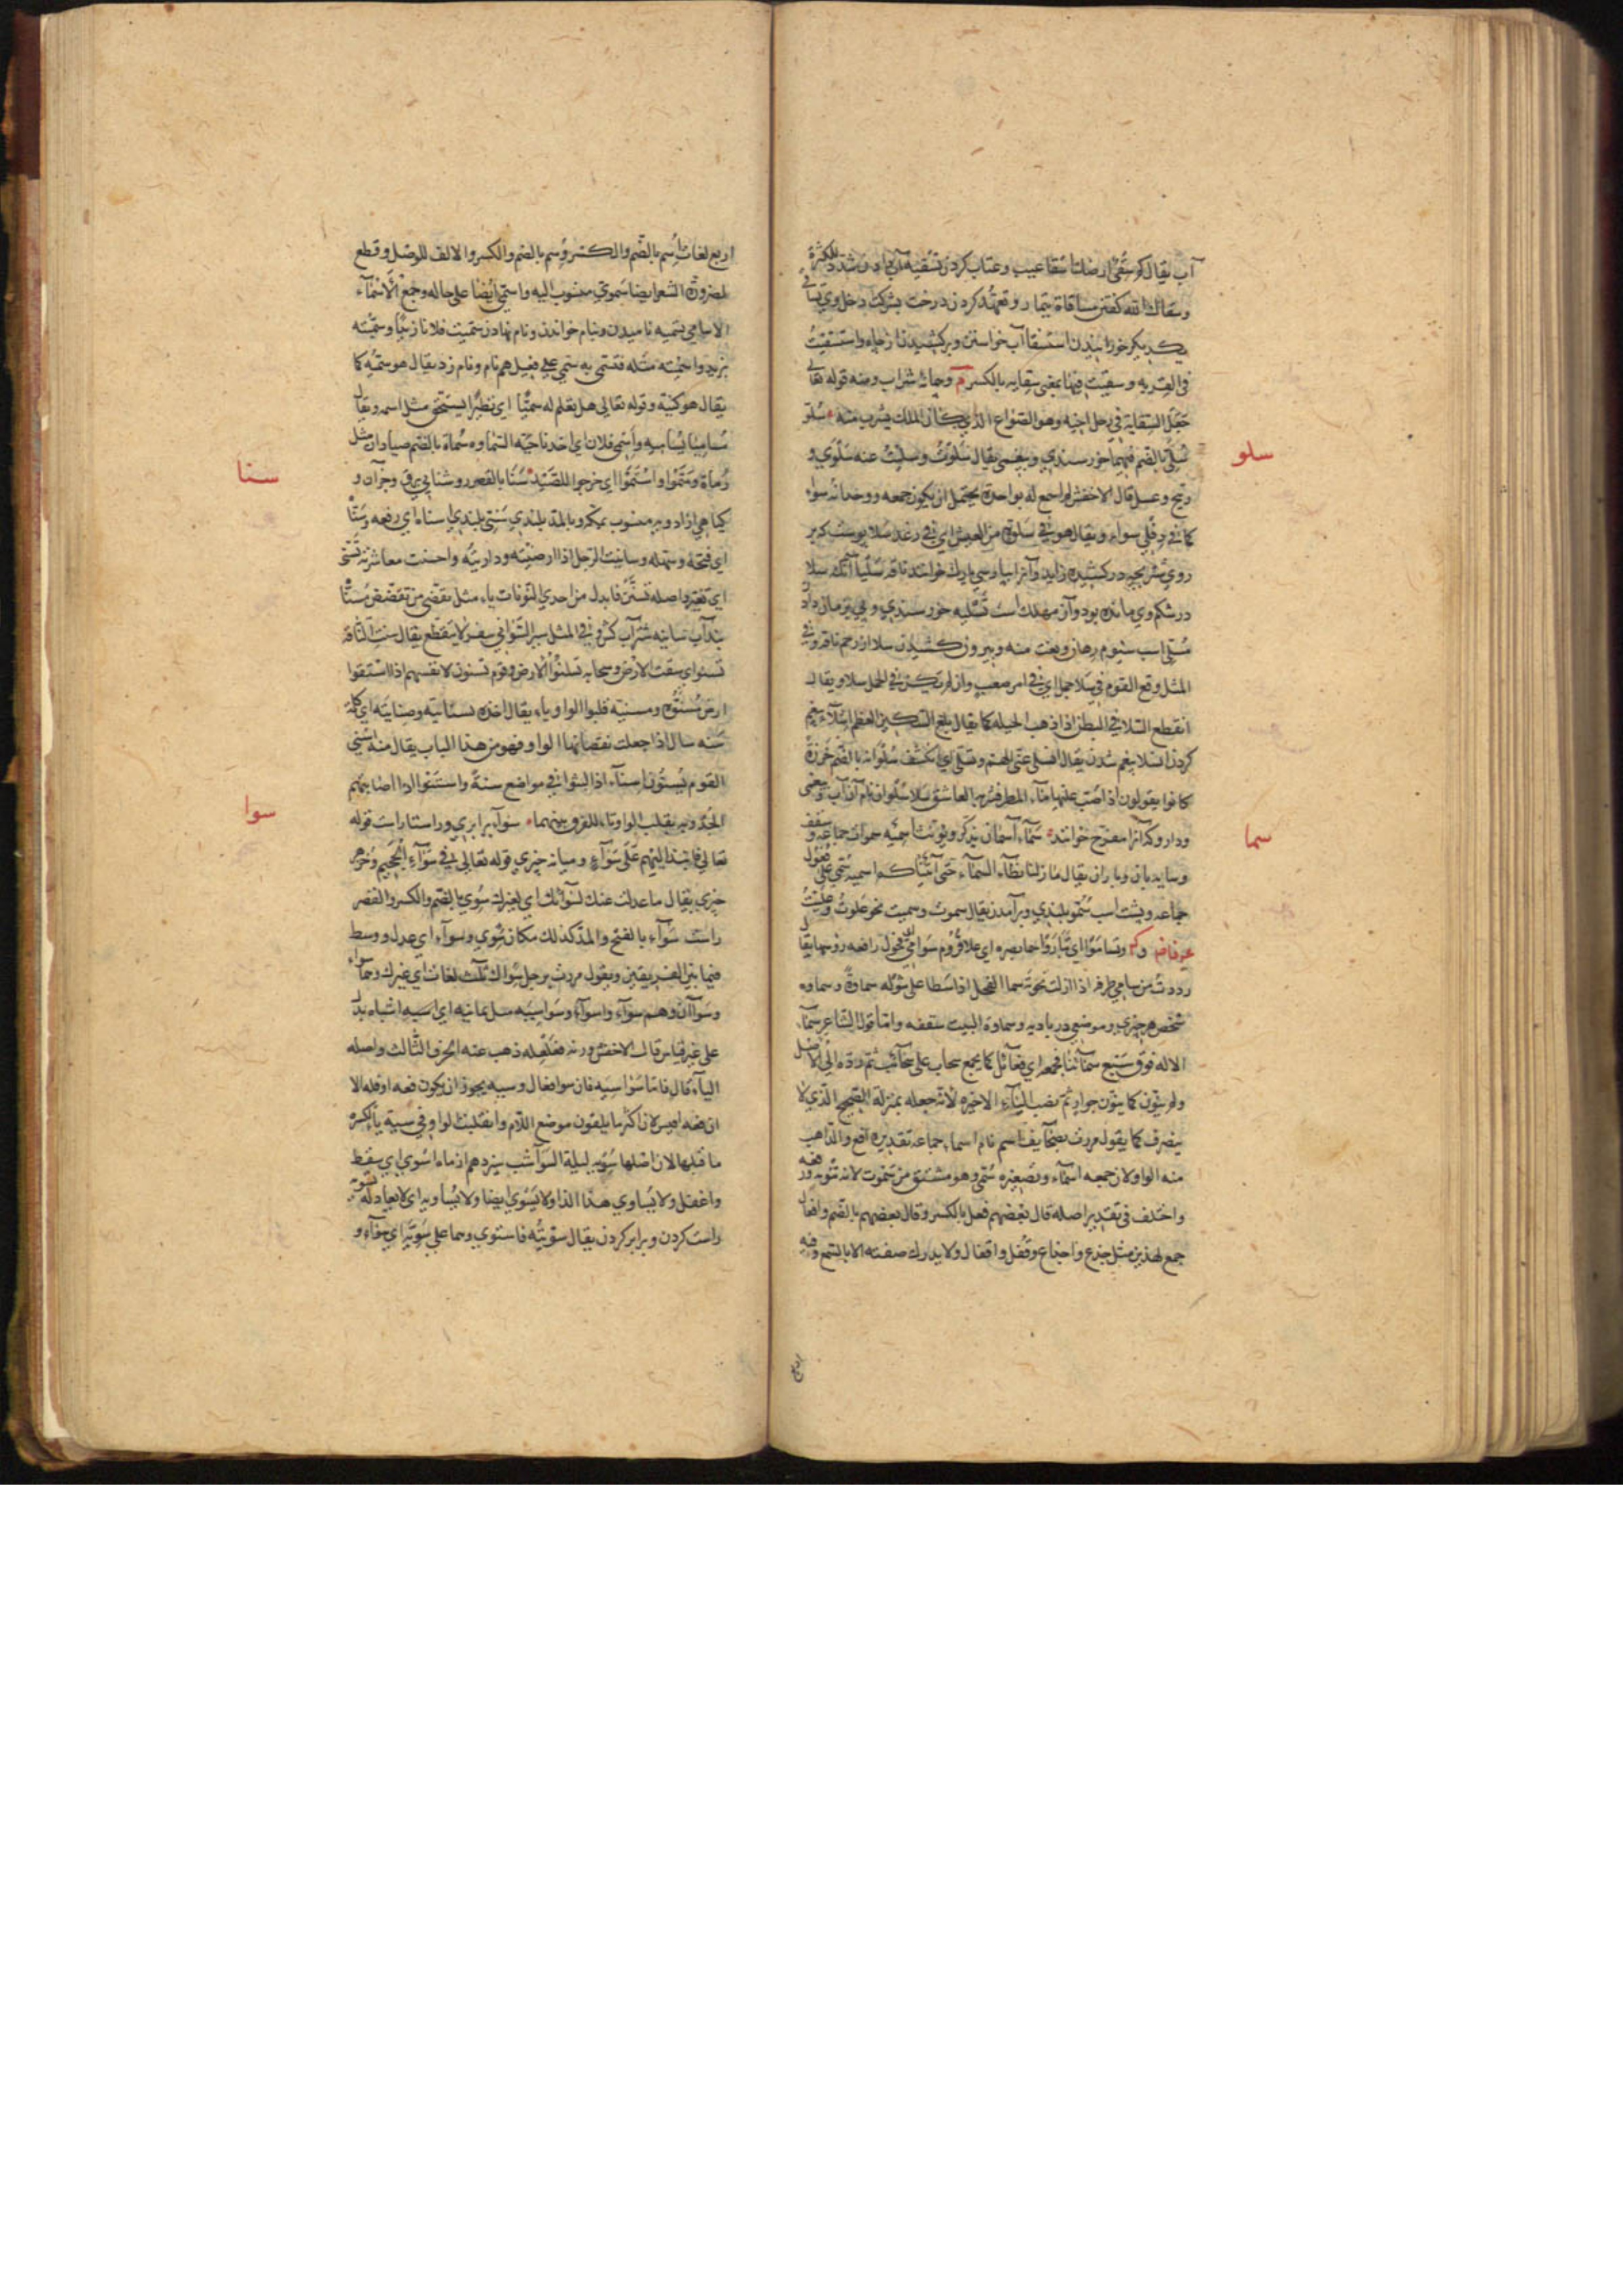 آب يقال كم سقي ارضك اسقا عيب وعتاب كردن تسقيه آب دادن شدد للكثرة
وسقاك الله كفتن مساقاة تيمار وتعهد كردن درخت بشركت دخل وي تساقي
يكديكر خورانيدن استسقا آب خواستن وبركشيدن از چاه واستسقيت
في القربه وسقيت فيها بمعني سقايه بالكسر م وجاي شراب ومنه قوله تعالي
جعل السقاية في رحل اخيه وهو الصواع الذي كان الملك يشرب منه سلو
سلو
سلي بالضم فيهما خورسندي وبيغمي يقال سلوت وسليت عنه سلوي و
ريح وعسل قال الاخفش لم اسمع له بواحدة يحتمل ان يكون جمعه ووحدانه سواء
كما في دفلي سواء ويقال هو في سلوة من العيش اي في رغد سلا پوست كه بر
روي شتر بچه دركشيده زايد وآنرا بپارسي يارك خوانند ناقه سلياء آنك سلا
درشكم وي مانده بود وآن مهلك است تسليه خورسندي وبي تيماري دادن
مسلي اسب سيوم رهان ونعت منه وبيرون كشيدن سلا از رحم ناقه وفي
المثل وقع القوم في سلا جمل اي في امر صعب وان لم تكن في الجمل سلا ويقال
انقطع السلا في البطن اذا ذهب الحيله كما يقال بلغ السكين العظم اسلاء بيغم
كردن انسلا بيغم شدن يقال انسلي عني الهم وتسلي اي انكشف سلوانه بالضم خرزة
كانوا يقولون اذا صب عليها ماء المطر فشربه العاشق سلا سلوان نام آن آب وبيغمي
وداروكه آنرا مفرح خوانند سماء آسمان يذكر ويونث اسميه سموات جماعه وسقف
سما
وسايه بان وباران يقال ما زلنا نطاء السماء حتي آتيناكم اسميه سمي علي فعول
جماعه وپشت اسب سمو بلندي وبرآمدن يقال سموت وسميت نحو علوت وعليت
عن فاضم وك وتساموا اي تباروا سما بصره اي علا قروم سوامي اي فحول رافعه روسها يقال
رددت من سامي طرفه اذا ازلت نخوته سما الفحل اذا سطا علي شوله سماوة وسماوه
شخص هر چيزي وموضعي در باديه وسماوة البيت سقفه واما قول الشاعر سماء
الاله فوق سبع سمائنا فجمعه اي فعائل كما يجمع سحاب علي سحائب ثم رده الي الاصل
ولم ينون كما ينون جوار ثم نصب الياء الاخيره لانه جعله بمنزلة الصحيح الذي لا
ينصرف كما يقول مررت بصحآيف اسم نام اسماء جماعه تقديره افع والذاهب
منه الواو لان جمعه اسماء وتصغيره سمي وهو مشتق من سموت لانه تنويه ورفعه
واختلف في تقدير اصله قال بعضهم فعل بالكسر وقال بعضهم بالضم وافعال
جمع لهذين مثل جذع واجذاع وقفل واقفال ولا يدرك صفته الا بالسمع وفيه
اربع
اربع لغات اسم بالضم والكسر وسم بالضم والكسر والالف للوصل وقطع
لضرورة الشعر ايضا سموي منسوب اليه واسمي ايضا علي حاله وجمع الاسماء
الاسامي تسميه ناميدن وبنام خواندن ونام نهادن سميت فلانا زيدا وسميته
بزيد واسميته مثله فتسمي به سمي علي فعيل هم نام ونام زد يقال هو سميه كما
يقال هو كنيه وقوله تعالي هل تعلم له سميا اي نظيرا يستحق مثل اسمه ويقال
مساميا يساميه واسمي فلان اي اخذ ناحية السماوه سماة بالضم صيادان مثل
رماة وسموا واستموا اي خرجوا للصيد سنا بالقصر روشنايي برق وجز آن و
سنا
كياهي از ادويه منسوب بمكه وبالمد بلندي سني بلندي اسناه اي رفعه وسناه
اي فتحه وسهله وسانيت الرجل اذا ارضيته وداريته واحسنت معاشرته تسني
اي تغير واصله تسنن فابدل من احدي النونات ياء مثل تقضي من تقضض مسناة
بند آب سانيه شتر آب كش وفي المثل سير السواني سفر لا ينقطع يقال سنت الناقة
تسنو اي سقت الارض وسحابه تسنوا الارض وقوم تسنون لانفسهم اذا استقوا
ارض مسنوه ومسنيه قلبوا الواو ياء يقال اخذه بسنايته وصنايته اي كله
سنه سال اذا جعلت نقصانها الواو فهو من هذا الباب يقال منه اسني
القوم يسنون اسناء اذا لبثوا في مواضع سنة واستنوا اذا اصابتهم
الجدوبه بقلب الواو تاء للفرق بينهما سواء برابري وراستا راست قوله
سوا
تعالي فانبذ اليهم علي سواء وميانه چيزي قوله تعالي في سواء الجحيم وجز هر
چيزي يقال ما عدلت عنك لسوائك اي لغيرك سوي بالضم والكسر والقصر
راست سواء بالفتح والمد كذلك مكان سوي وسواء اي عدل ووسط
فيما بين الفريقين ويقول مررت برجل سواك ثلث لغات اي غيرك وهما سواء
وسواآن وهم سواء واسواء وسواسيه مثل ثمانيه اي اسيه اشباه بدل
علي غير قياس قال الاخفش ورنه فعلفله ذهب عنه الحرف الثالث واصله
الياء قال فاما سواسيه فان سوا فعال وسيه يجوز ان يكون فعه او فله الا
ان فعه اقيس لان اكثر ما يلقون موضع اللام وانقلبت الواو في سية ياء لكسرة
ما قبلها لان اصلها سويه ليلة السواء شب سيزدهم از ماه اسوي اي سقط
واغفل ولا يساوي هذا الذا ولا يسوي ايضا ولا يساويه اي لا يعادله تسويه
راست كردن وبرابر كردن يقال سويته فاستوي وهما علي سويه اي سواء و